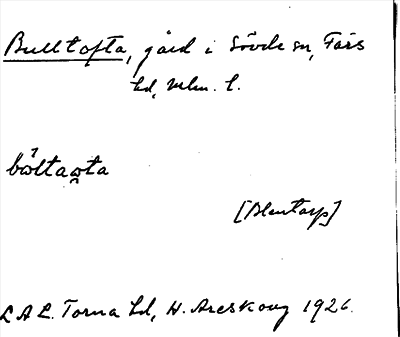 Bulltofta, gård i Sövde sn, Färs
hd, Mlm. l.
bǿltao̯ta
[Blentarp]
L A L. Torna hd, H. Areskoug 1926.